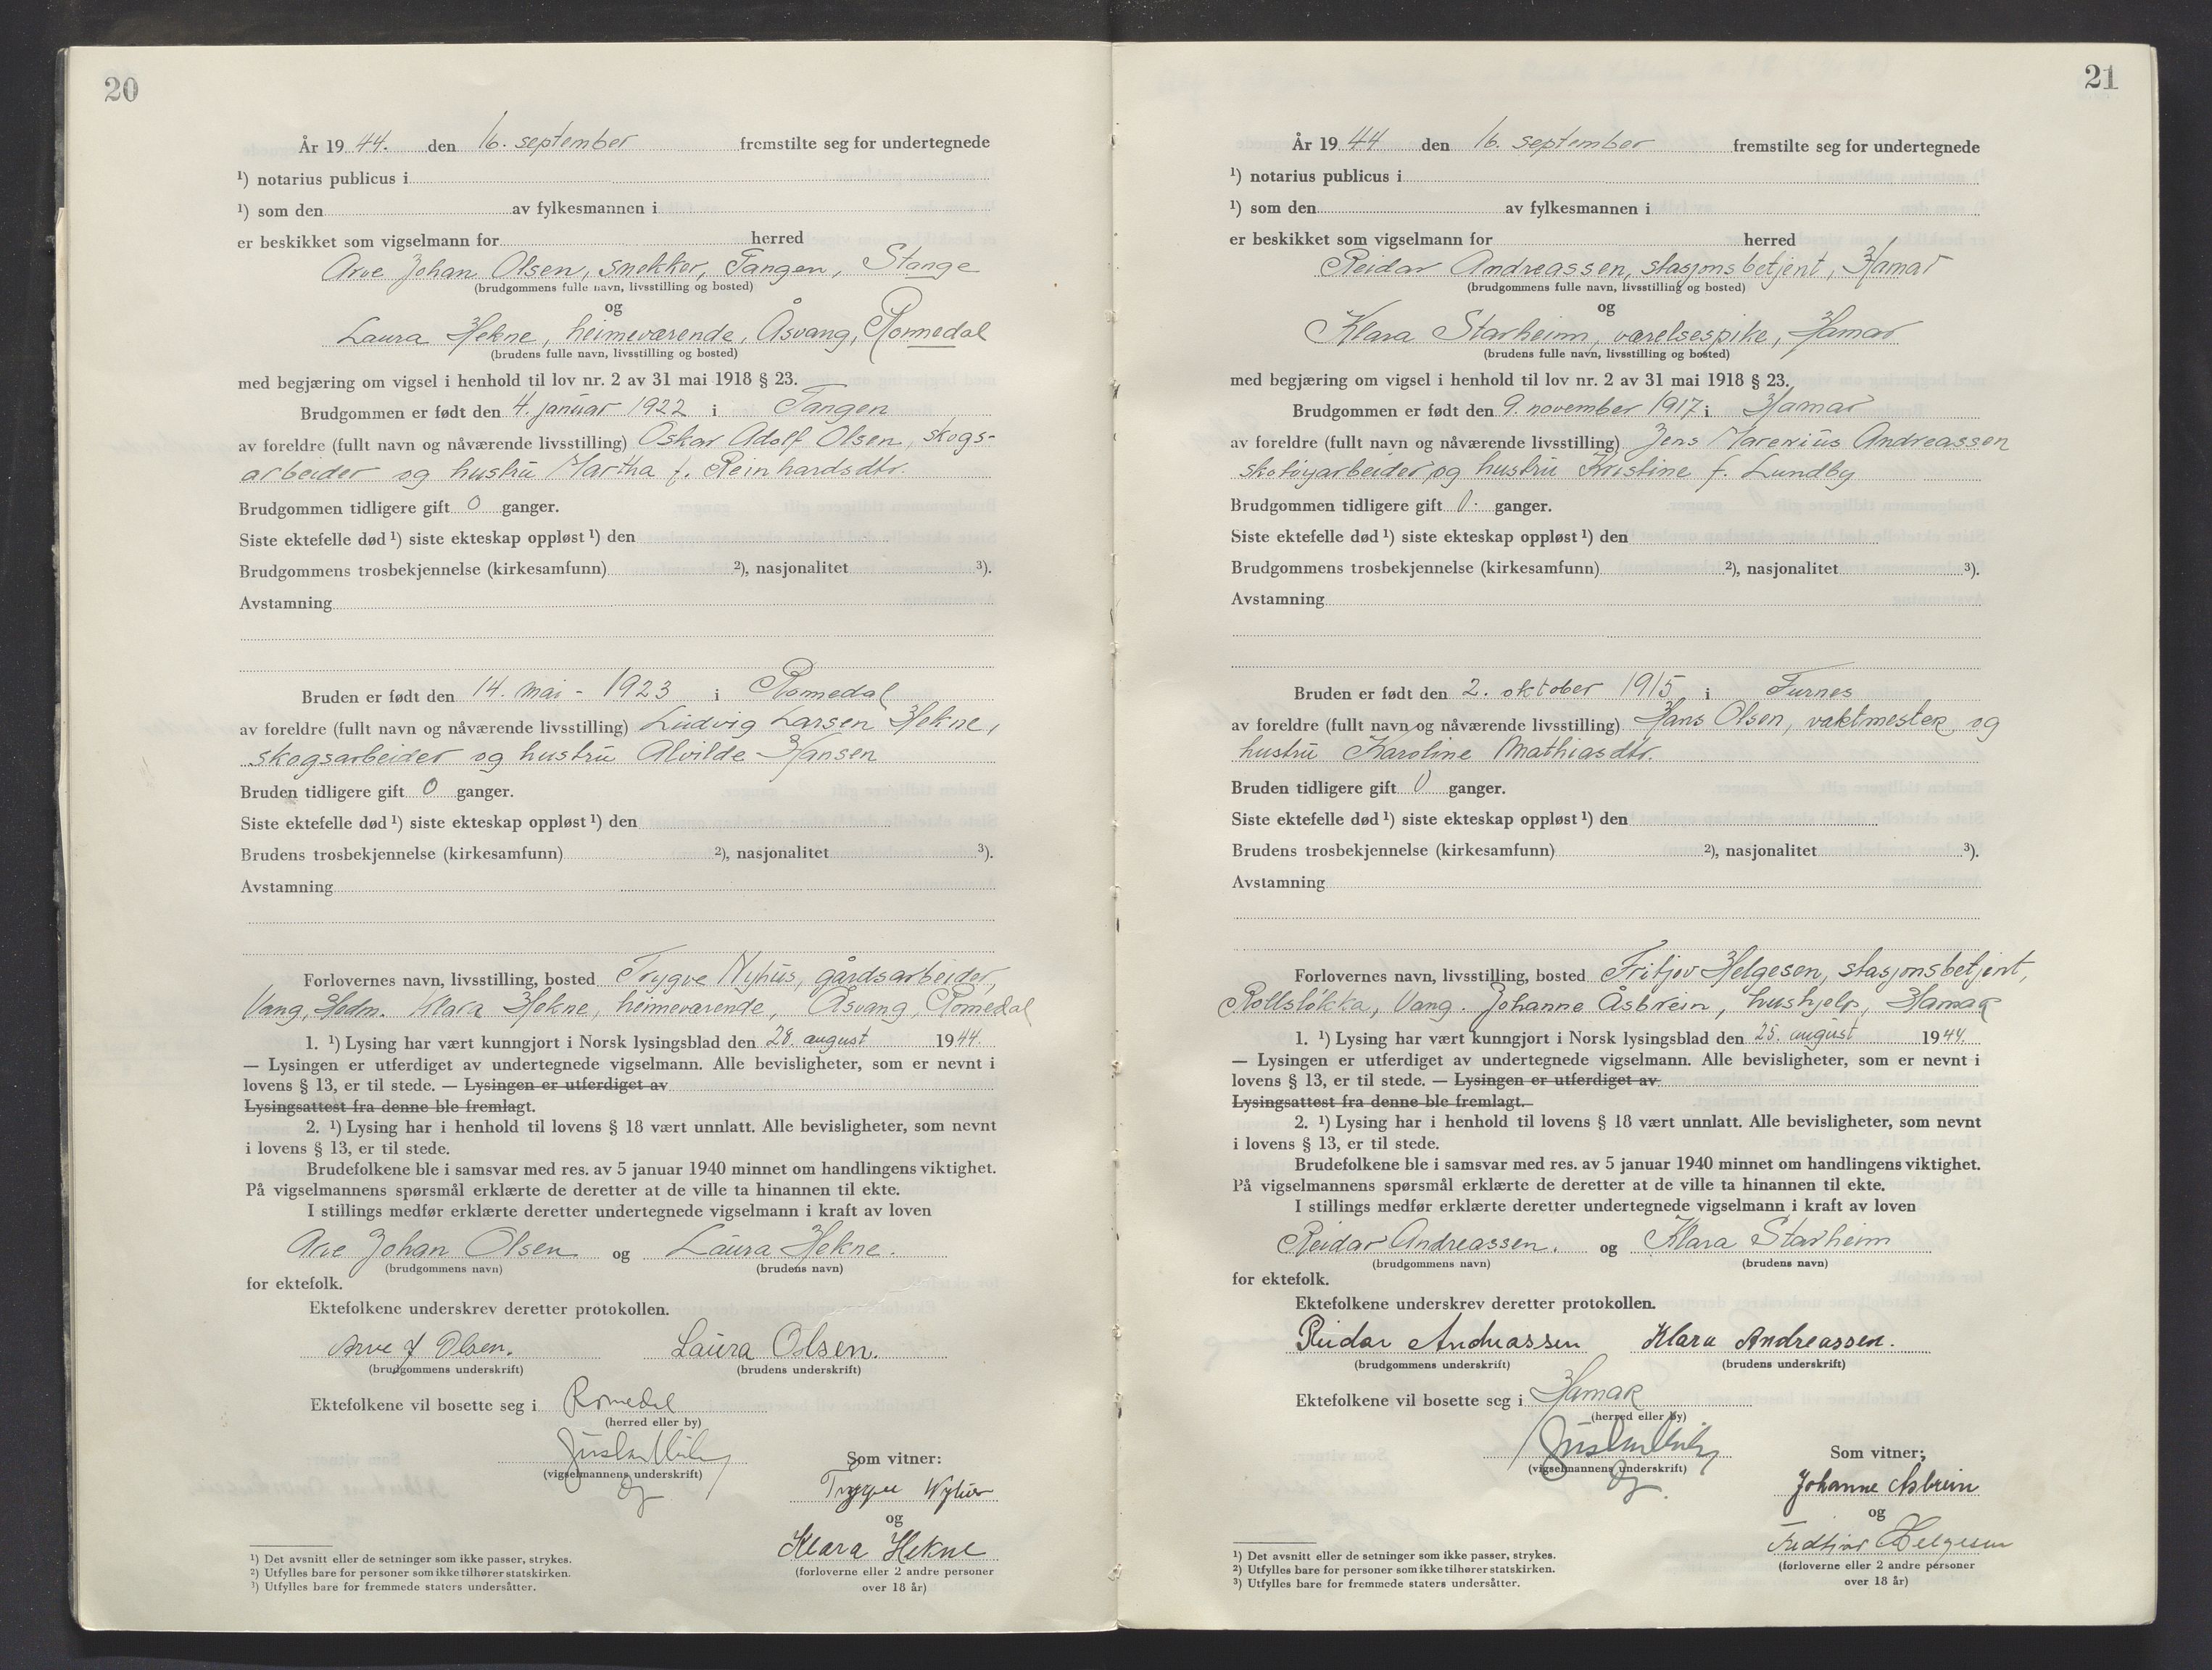 20
År 19 44. den 16. september fremstilte seg for undertegnede
¹) notarius publicus i
¹) som den av fylkesmannen i
er beskikket som vigselmann for herred
Arve Johan Olsen, snekker, Tangen, Stange
(brudgommens fulle navn, livsstilling og bosted)
og
Laura Hekne, heimeværende, Åsvang, Romedal
(brudens fulle navn, livsstilling og bosted)
med begjæring om vigsel i henhold til lov nr. 2 av 31 mai 1918 § 23.
Brudgommen er født den 4. januar 1922 i Tangen
av foreldre (fullt navn og nåværende livsstilling) Oskar Adolf Olsen, skogs-
arbeider og hustru Martha f. Reinhardsdtr.
Brudgommen tidligere gift 0 ganger.
Siste ektefelle død ¹) siste ekteskap oppløst ¹) den
Brudgommens trosbekjennelse (kirkesamfunn) ²), nasjonalitet ³).
Avstamning
Bruden er født den 14. mai - 1923 i Romedal
av foreldre (fullt navn og nåværende livsstilling) Ludvig Larsen Hekne,
skogsarbeider og hustru Alvilde Hansen
Bruden tidligere gift 0 ganger.
Siste ektefelle død ¹) siste ekteskap oppløst ¹) den
Brudens trosbekjennelse (kirkesamfunn) ²), nasjonalitet ³).
Avstamning
Forlovernes navn, livsstilling, bosted Trygve Nyhus, gårdsarbeider,
Vang, Hedm. Klara Hekne, heimeværende, Åsvang, Romedal
1. ¹) Lysing har vært kunngjort i Norsk lysingsblad den 28. august 1944.
— Lysingen er utferdiget av undertegnede vigselmann. Alle bevisligheter, som er nevnt i
lovens § 13, er til stede. — Lysingen er utferdiget av
Lysingsattest fra denne ble fremlagt.
2. ¹) Lysing har i henhold til lovens § 18 vært unnlatt. Alle bevisligheter, som nevnt
i lovens § 13, er til stede.
Brudefolkene ble i samsvar med res. av 5 januar 1940 minnet om handlingens viktighet.
På vigselmannens spørsmål erklærte de deretter at de ville ta hinannen til ekte.
I stillings medfør erklærte deretter undertegnede vigselmann i kraft av loven
Arve Johan Olsen og Laura Hekne.
(brudgommens navn) (brudens navn)
for ektefolk.
Ektefolkene underskrev deretter protokollen.
Arve J Olsen. Laura Olsen.
(brudgommens underskrift) (brudens underskrift)
Ektefolkene vil bosette seg i Romedal
(herred eller by)
(vigselmannens underskrift)
Som vitner:
Trygve Nyhus
og
Klara Hekne
(forloverne eller 2 andre personer
over 18 år)
¹) Det avsnitt eller de setninger som ikke passer, strykes.
²) Utfylles bare for personer som ikke tilhører statskirken.
³) Utfylles bare for fremmede staters undersåtter.
21
År 19 44 den 16. september fremstilte seg for undertegnede
¹) notarius publicus i
¹) som den av fylkesmannen i
er beskikket som vigselmann for herred
Reidar Andreassen, stasjonsbetjent, Hamar
(brudgommens fulle navn, livsstilling og bosted)
og
Klara Starheim, værelsespike, Hamar
(brudens fulle navn, livsstilling og bosted)
med begjæring om vigsel i henhold til lov nr. 2 av 31 mai 1918 § 23.
Brudgommen er født den 9. november 1917 i Hamar
av foreldre (fullt navn og nåværende livsstilling) Jens Marenius Andreassen
skotøyarbeider og hustru Kristine f. Lundby
Brudgommen tidligere gift 0 ganger.
Siste ektefelle død ¹) siste ekteskap oppløst ¹) den
Brudgommens trosbekjennelse (kirkesamfunn) ²), nasjonalitet ³).
Avstamning
Bruden er født den 2. oktober 1915 i Furnes
av foreldre (fullt navn og nåværende livsstilling) Hans Olsen, vaktmester og
hustru Karoline Mathiasdtr.
Bruden tidligere gift 0 ganger.
Siste ektefelle død ¹) siste ekteskap oppløst ¹) den
Brudens trosbekjennelse (kirkesamfunn) ²), nasjonalitet ³).
Avstamning
Forlovernes navn, livsstilling, bosted Fritjov Helgesen, stasjonsbetjent,
Rollsløkka, Vang. Johanne Åsbrein, hushjelp, Hamar
1. ¹) Lysing har vært kunngjort i Norsk lysingsblad den 25. august 1944.
— Lysingen er utferdiget av undertegnede vigselmann. Alle bevisligheter, som er nevnt i
lovens § 13, er til stede. — Lysingen er utferdiget av
Lysingsattest fra denne ble fremlagt.
2. ¹) Lysing har i henhold til lovens § 18 vært unnlatt. Alle bevisligheter, som nevnt
i lovens § 13, er til stede.
Brudefolkene ble i samsvar med res. av 5 januar 1940 minnet om handlingens viktighet.
På vigselmannens spørsmål erklærte de deretter at de ville ta hinannen til ekte.
I stillings medfør erklærte deretter undertegnede vigselmann i kraft av loven
Reidar Andreassen. og Klara Starheim
(brudgommens navn) (brudens navn)
for ektefolk.
Ektefolkene underskrev deretter protokollen.
Reidar Andreassen Klara Andreassen.
(brudgommens underskrift) (brudens underskrift)
Ektefolkene vil bosette seg i Hamar
(herred eller by)
(vigselmannens underskrift)
Som vitner;
Johanne Asbrein
og
Fridtjov Helgesen
(forloverne eller 2 andre personer
over 18 år)
¹) Det avsnitt eller de setninger som ikke passer, strykes.
²) Utfylles bare for personer som ikke tilhører statskirken.
³) Utfylles bare for fremmede staters undersåtter.